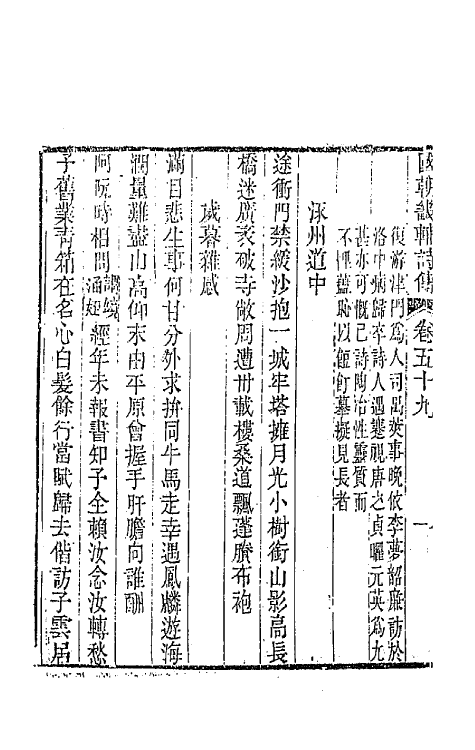 國朝畿輔詩傳 卷五十九 一
復游津門為人司出筴事晚攸李夢韶廉訪於
洛中病歸卒詩人遇蹇視唐之貞曜元英為尤
甚亦可慨已詩陶冶性靈質而
不俚謹恥以餖飣摹擬見長者
涿州道中
途衝門禁緩沙抱一城牢塔擁月光小樹銜山影高長
橋迷廣袤破寺敞周遭卅載樓桑道飄蓬賸布袍
歲暮雜感
滿目悲生事何甘分外求拚同牛馬走幸遇鳳麟遊海
濶量難盡山高仰未由平原會握手肝膽向誰酬
阿阮時相問謂鏡涵姪經年未報書知予全賴汝念汝轉愁
予舊業青箱在名心白髮餘行當賦歸去偕訪子雲居